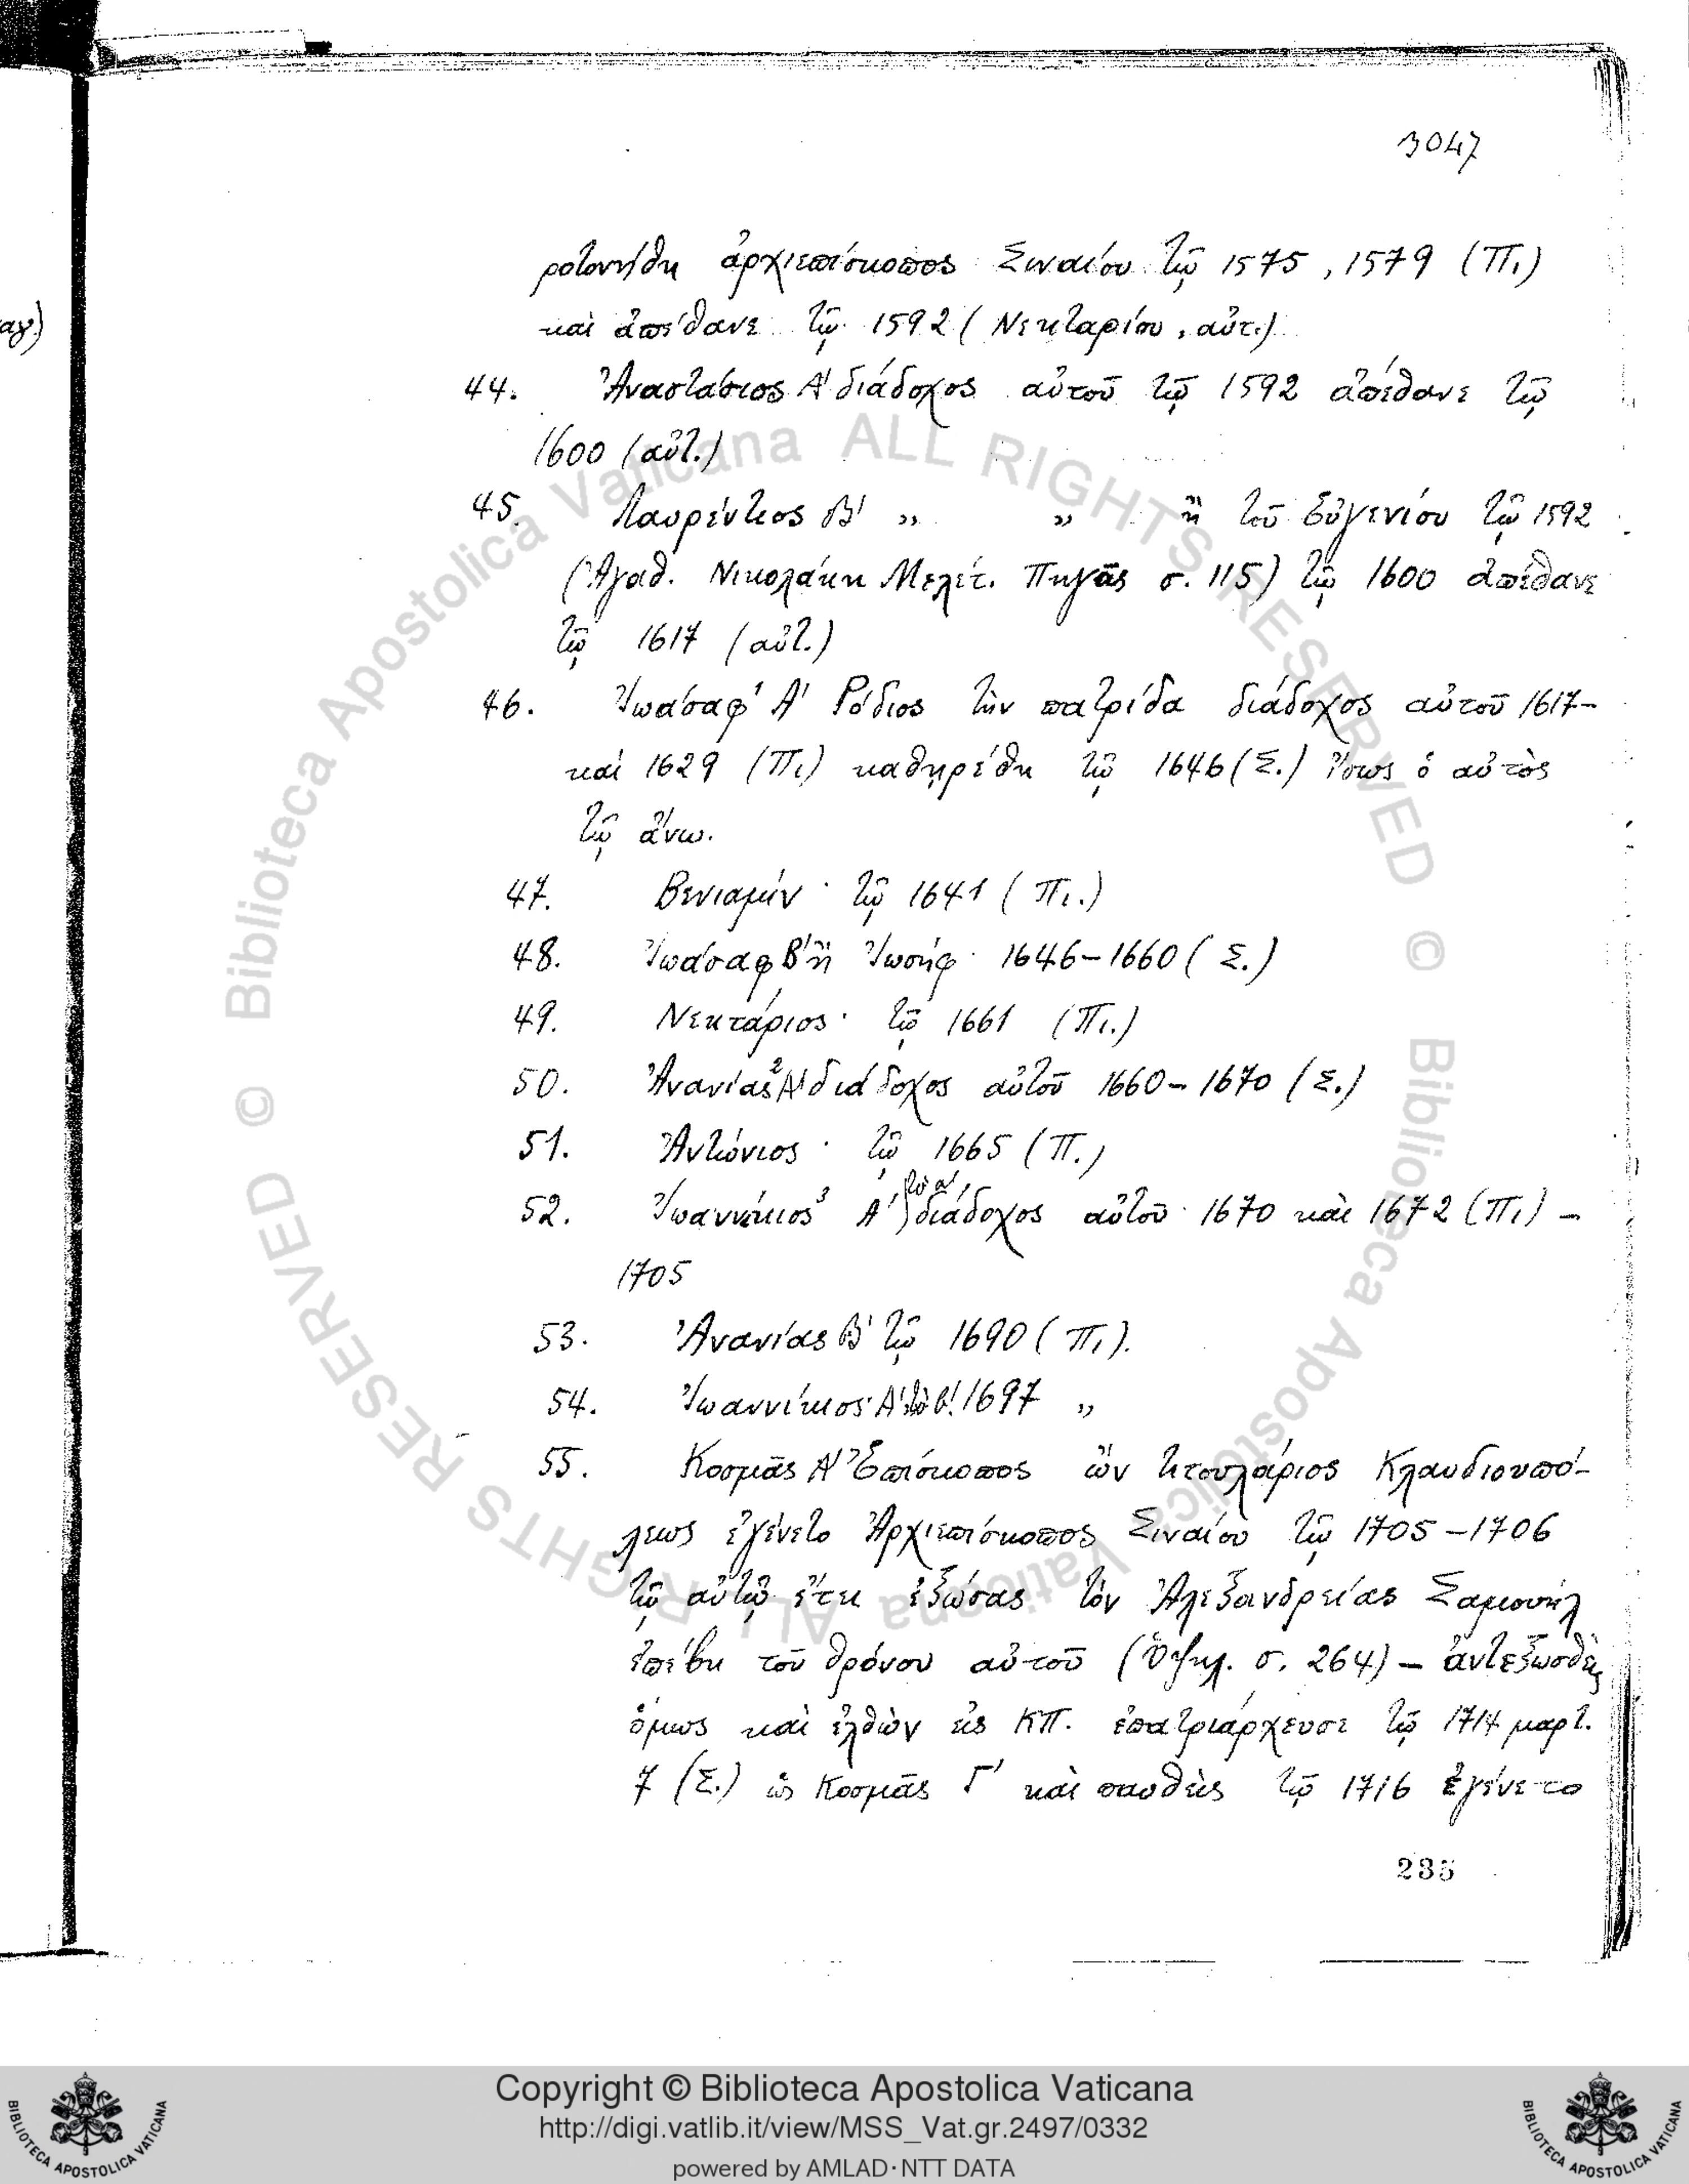 3047
αγ)
ροτονήθη ἀρχιεπίσκοπος Σιναίου τῷ 1575, 1579 (Πι)
καὶ ἀπέθανε τῷ 1592 (Νεκταρίου, αὐτ.)
44. Ἀναστάσιος Α' διάδοχος αὐτοῦ τῷ 1592 ἀπέθανε τῷ
1600 (αὐτ.)
45. Λαυρέντιος Β' „ „ ἢ τοῦ Εὐγενίου τῷ 1592
(Ἀγαθ. Νικολάκη Μελέτ. Πηγᾶς σ. 115) τῷ 1600 ἀπέθανε
τῷ 1617 (αὐτ.)
46. Ἰωάσαφ' Α' Ρόδιος τὴν πατρίδα διάδοχος αὐτοῦ 1617-
καί 1629 (Πι) καθῃρέθη τῷ 1646 (Σ.) Ἴσως ὁ αὐτὸς
τῷ ἄνω.
47. Βενιαμίν · τῷ 1641 (Πι.)
48. Ἰωάσαφ Β' ἢ Ἰωσήφ · 1646-1660 (Σ.)
49. Νεκτάριος · τῷ 1661 (Πι.)
50. Ἀνανίας Α' διάδοχος αὐτοῦ 1660-1670 (Σ.)
51. Ἀντώνιος · τῷ 1665 (Π.)
52. Ἰωαννίκιος Α' τὸ α' διάδοχος αὐτοῦ · 1670 καὶ 1672 (Πι) -
1705
53. Ἀνανίας Β' τῷ 1690 (Πι).
54. Ἰωαννίκιος Α' τὸ β'. 1697 „
55. Κοσμᾶς Α' Ἐπίσκοπος ὢν τιτουλάριος Κλαυδιουπό-
λεως ἐγένετο Ἀρχιεπίσκοπος Σιναίου τῷ 1705-1706
τῷ αὐτῷ ἔτει ἐξώσας τὸν Ἀλεξανδρείας Σαμουὴλ
ἐπέβη τοῦ θρόνου αὐτοῦ (Ὀψηλ. σ. 264) - ἀντεξωσθεὶς
ὅμως καὶ ἐλθὼν εἰς ΚΠ. ἐπατριάρχευσε τῷ 1714 μαρτ.
7 (Σ.) ὡς Κοσμᾶς Γ' καὶ παυθεὶς τῷ 1716 ἐγένετο
235
© Biblioteca Apostolica Vaticana ALL RIGHTS RESERVED © Biblioteca Apostolica Vaticana ALL RIGHTS RESERVED
Copyright © Biblioteca Apostolica Vaticana
http://digi.vatlib.it/view/MSS_Vat.gr.2497/0332
powered by AMLAD·NTT DATA
BIBLIOTECA APOSTOLICA VATICANA
BIBLIOTECA APOSTOLICA VATICANA